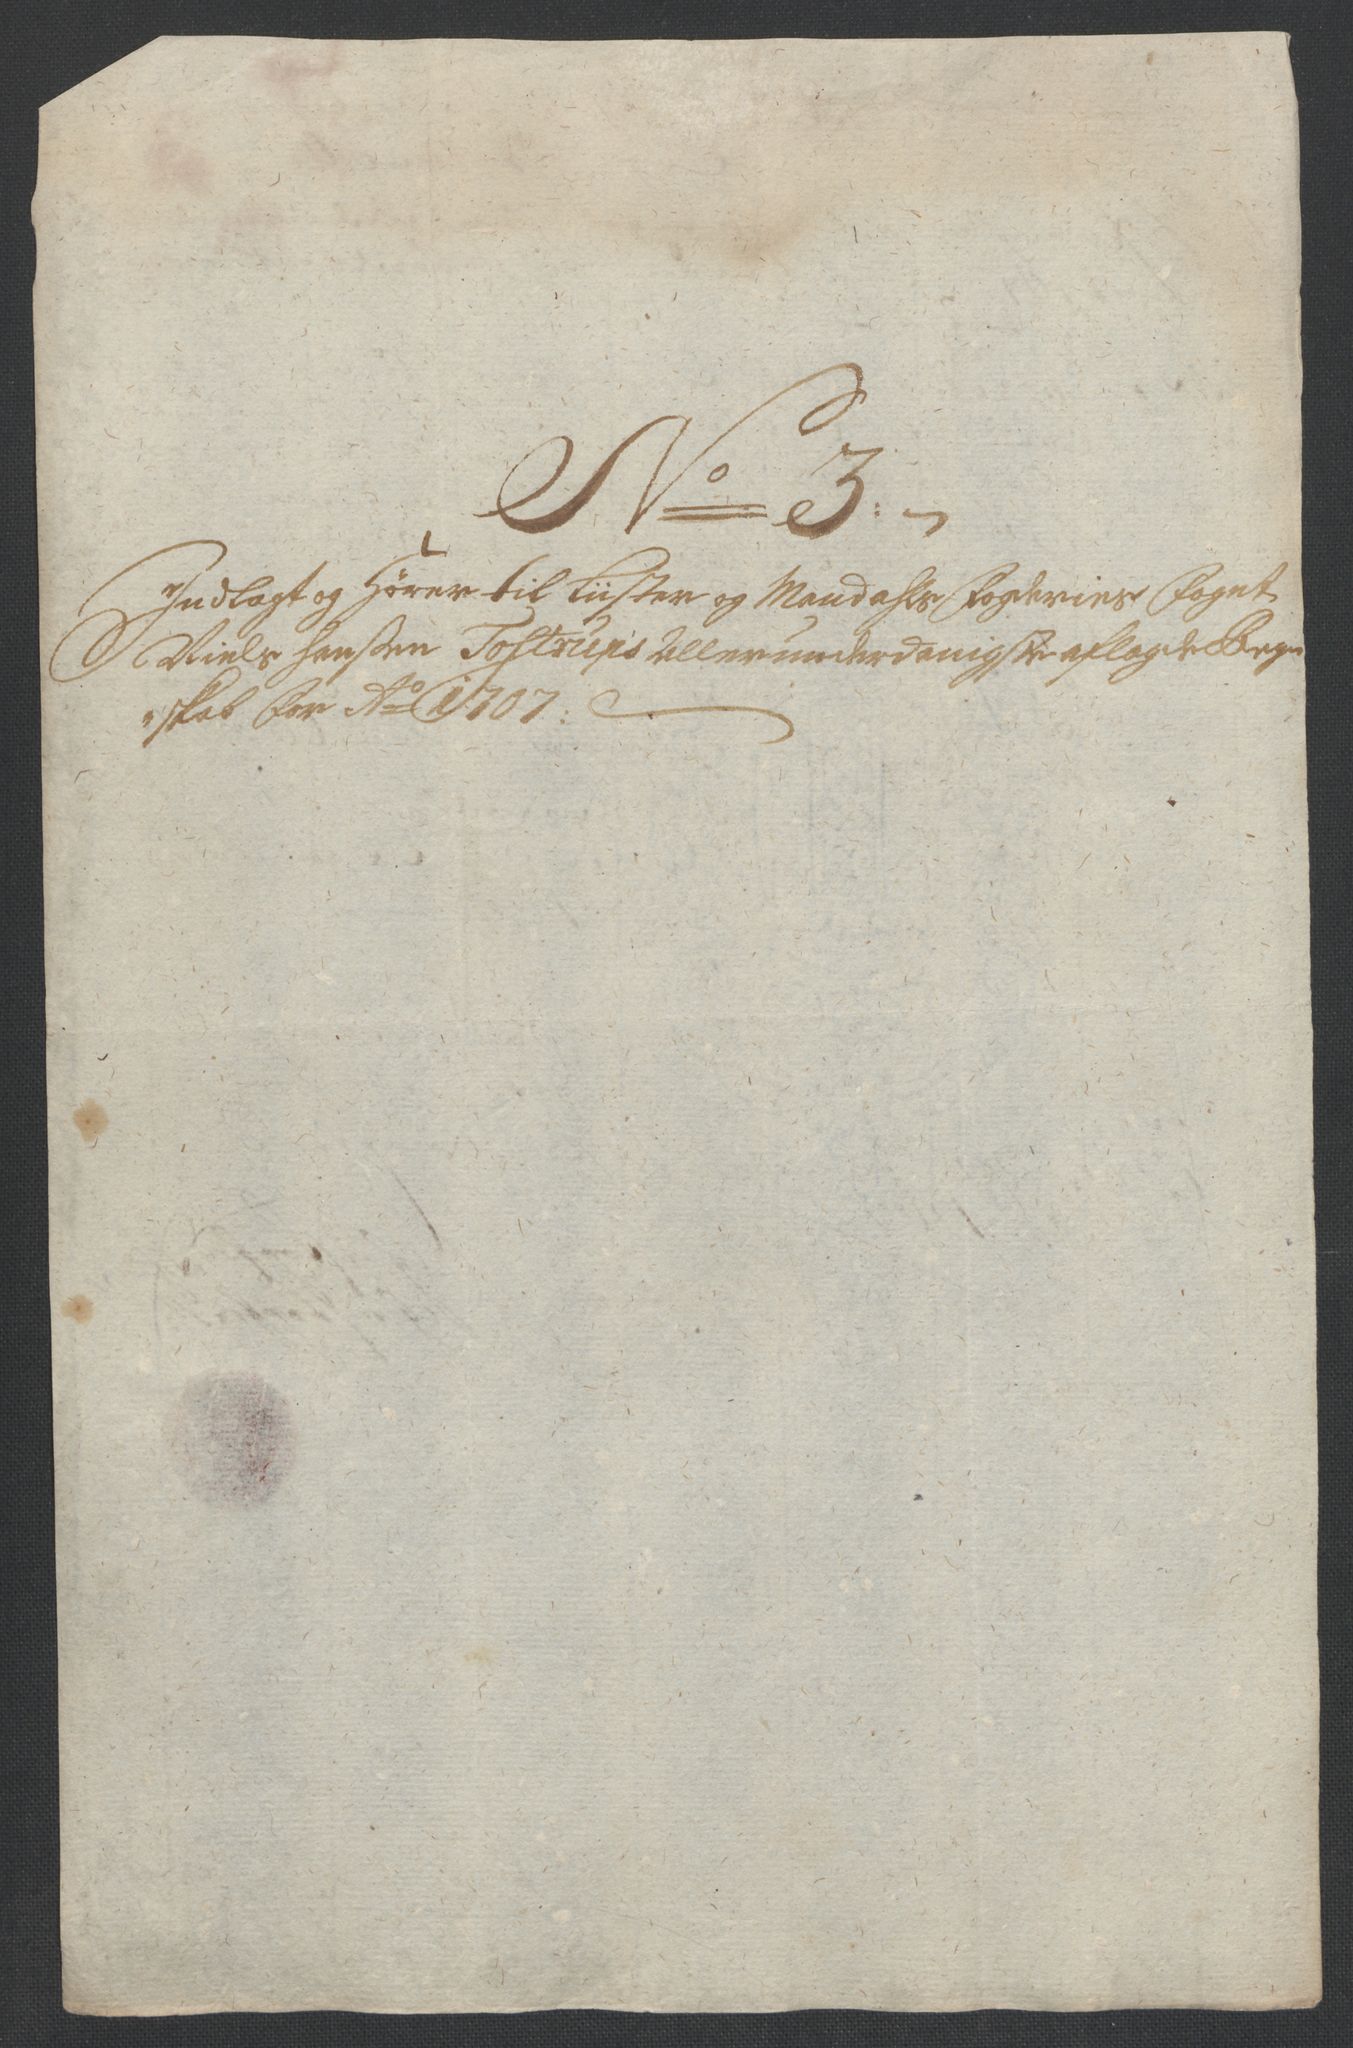 No 3:
Indlagt og Hører til Lister og Mandahls fogderies foget
Niels Hanssen Tostrups allerunderdanigste aflagde Regn
skab for Ao 1707: